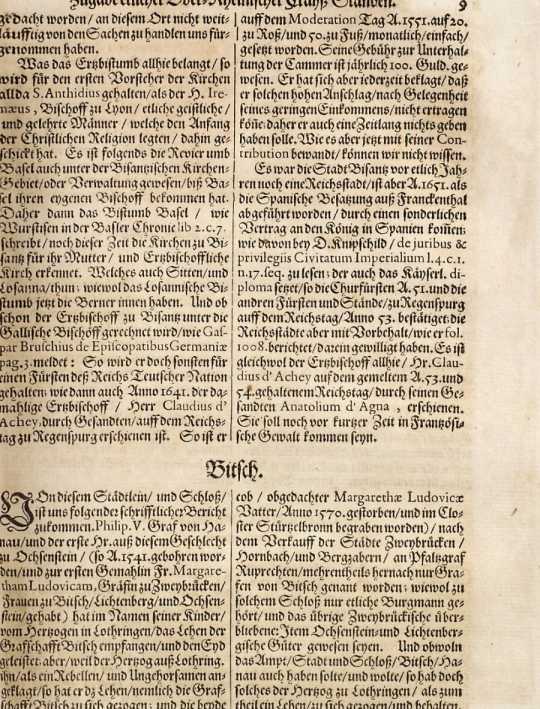 Zugab etlicher Ober-Rheinischer Crayß Ständen. 9
gedacht worden/ an diesem Ort nicht weit-
läuffig von den Sachen zu handlen uns für-
genommen haben.
Was das Ertzbistumb allhie belangt/ so
wird für den ersten Vorsteher der Kirchen
allda S. Anthidius gehalten/ als der H. Ire-
næus, Bischoff zu Lyon/ etliche geistliche/
und gelehrte Männer/ welche den Anfang
der Christlichen Religion legten/ dahin ge-
schickt hat. Es ist folgends die Revier umb
Basel auch unter der Bisantzischen Kirchen-
Gebiet/ oder Verwaltung gewesen/ biß Ba-
sel ihren eygenen Bischoff bekommen hat.
Daher dann das Bistumb Basel/ wie
Wurstisen in der Basler Chronic lib 2. c. 7.
schreibt/ noch dieser Zeit die Kirchen zu Bi-
santz für ihr Mutter/ und Ertzbischoffliche
Kirch erkennet. Welches auch Sitten/ und
Losanna/ thun; wiewol das Losannische Bi-
stumb jetzt die Berner innen haben. Und ob
schon der Ertzbischoff zu Bisantz unter die
Gallische Bischöff gerechnet wird/ wie Gas-
par Bruschius de Episcopatibus Germaniæ
pag. 3. meldet: So wird er doch sonsten für
einen Fürsten deß Reichs Teutscher Nation
gehalten; wie dann auch Anno 1641. der da-
mahlige Ertzbischoff/ Herr Claudius d'
Achey, durch Gesandten/ auff dem Reichs-
tag zu Regenspurg erschienen ist. So ist er
auff dem Moderation Tag A. 1551. auf 20.
zu Roß/ und 50. zu Fuß/ monatlich/ einfach/
gesetzt worden. Seine Gebühr zur Unterhal-
tung der Cammer ist jährlich 100. Guld. ge-
wesen. Er hat sich aber jederzeit beklagt/ daß
er solchen hohen Anschlag/ nach Gelegenheit
seines geringen Einkommens/ nicht ertragen
köñe; daher er auch eine Zeitlang nichts geben
haben solle. Wie es aber jetzt mit seiner Con-
tribution bewandt/ können wir nicht wissen.
Es war die Stadt Bisantz vor etlich Jah-
ren noch eine Reichsstadt/ ist aber A. 1651. als
die Spanische Besatzung auß Franckenthal
abgeführt worden/ durch einen sonderlichen
Vertrag an den König in Spanien kom̃en;
wie davon bey D. Knipschild/ de juribus &
privilegiis Civitatum Imperialium l. 4. c. 1.
n. 17. seq. zu lesen; der auch das Käyserl. di-
ploma setzet/ so die Churfürsten A. 51. und die
andren Fürsten und Stände/ zu Regenspurg
auff dem Reichstag/ Anno 53. bestätiget: die
Reichstädte aber mit Vorbehalt/ wie er fol.
1008. berichtet/ darein gewilligt haben. Es ist
gleichwol der Ertzbischoff allhie/ Hr. Clau-
dius d' Achey auff dem gemeltem A. 53. und
54. gehaltenem Reichstag/ durch seinen Ge-
sandten Anatolium d' Agna, erschienen.
Sie soll noch vor kurtzer Zeit in Frantzösi-
sche Gewalt kommen seyn.
Bitsch.
VOn diesem Städtlein/ und Schloß/
ist uns folgender schrifftlicher Bericht
zukommen. Philip. V. Graf von Ha-
nau/ und der erste Hr. auß diesem Geschlecht
zu Ochsenstein/ (so A. 1541. gebohren wor-
den/ und zur ersten Gemahlin Fr. Margare-
tham Ludovicam, Gräfin zu Zweybrücken/
Frauen zu Bitsch/ Lichtenberg/ und Ochsen-
stein/ gehabt) hat im Namen seiner Kinder/
vom Hertzogen in Lothringen/ das Lehen der
Grafschafft Bitsch empfangen/ und den Eyd
geleistet: aber/ weil der Hertzog auß Lothring.
ihn/ als ein Rebellen/ und Ungehorsamen an-
geklagt/ so hat er dz Lehen/ nemlich die Graf-
schafft Bitsch zu sich gezogen; und die beyde
cob/ obgedachter Margarethæ Ludovicæ
Vatter/ Anno 1570. gestorben/ und im Clo-
ster Stürtzelbronn begraben worden)/ nach
dem Verkauff der Städte Zweybrücken/
Hornbach/ und Bergzabern/ an Pfaltzgraf
Ruprechten/ mehrentheils hernach nur Gra-
fen von Bitsch genant worden; wiewol zu
solchem Schloß nur etliche Burgmann ge-
hört/ und das übrige Zweybrückische über-
bliebene: Item Ochsenstein/ und Lichtenber-
gische Güter gewesen seyen. Und obwoln
das Ampt/ Stadt und Schloß/ Bitsch/ Ha-
nau auch haben solte/ und wolte/ so hab doch
solches der Hertzog zu Lothringen/ als zum
theil ein Lehen/ zu sich gezogen/ und behalten.